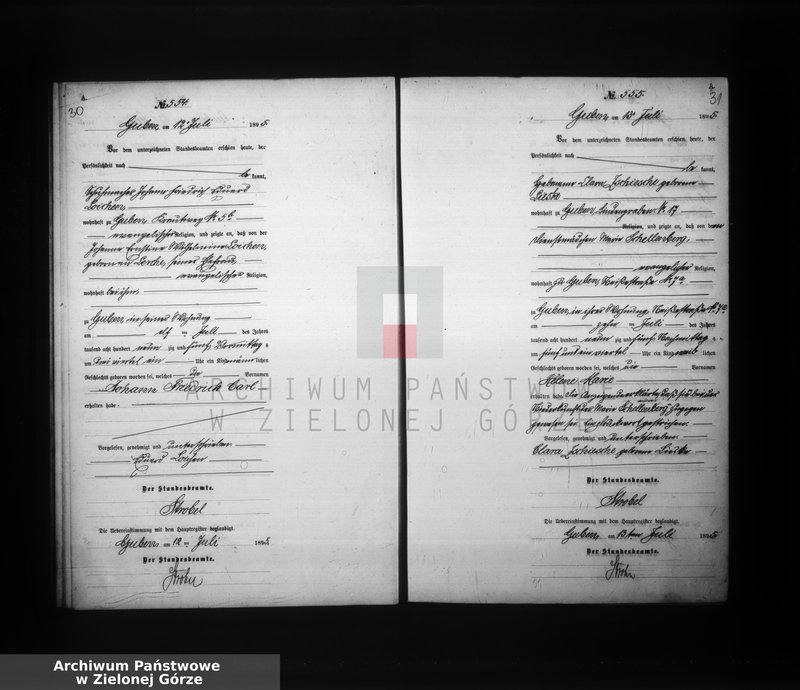 30
№ 554.
Guben am 12ten Juli 1895
Vor dem unterzeichneten Standesbeamten erschien heute, der
Persönlichkeit nach
kannt,
Schuhmacher Johann Friedrich Eduard
wohnhaft zu Guben
evangelischer Religion, und zeigte an, daß von der
Johanna Ernstine Wilhelmine
geborenen Lerche, seiner Ehefrau,
evangelischer Religion,
wohnhaft bei ihm
zu Guben in seiner Wohnung
am elf ten Juli des Jahres
tausend acht hundert neunzig und fünf Vormittags
um drei viertel ein Uhr ein Kind männlichen
Geschlechts geboren worden sei, welches die Vornamen
Johann Friedrich Carl
erhalten habe.
Vorgelesen, genehmigt und unterschrieben
Eduard
Der Standesbeamte.
Strobel
Die Uebereinstimmung mit dem Hauptregister beglaubigt.
Guben am 12 ten Juli 1895
Der Standesbeamte.
31
№ 555.
Guben am 13 Juli 1895
Vor dem unterzeichneten Standesbeamten erschien heute, der
Persönlichkeit nach
be kannt,
Hebamme Clara Zschiesche geborene
wohnhaft zu Guben, Lindengraben № 17
Religion, und zeigte an, daß von dem
Dienstmädchen Marie Schellenberg,
evangelischer Religion,
wohnhaft zu Guben
zu Guben, in ihrer Wohnung
am zehn ten Juli des Jahres
tausend acht hundert neunzig und fünf Nachmittags
fünf und ein viertel Uhr ein Kind weiblichen
Geschlechts geboren worden sei, welches die Vornamen
Helene Marie
erhalten habe. Die Anzeigende erklärte, daß sie bei der
Niederkunft der Marie Schellenberg zugegen
gewesen sei.
Vorgelesen, genehmigt und unterschrieben
Clara Zschiesche geborene
Der Standesbeamte.
Strobel
Die Uebereinstimmung mit dem Hauptregister beglaubigt.
Guben am 13 ten Juli 1895
Der Standesbeamte.
ARCHIWUM PAŃSTWOWE
W ZIELONEJ GÓRZE
Archiwum Państwowe
w Zielonej Górze